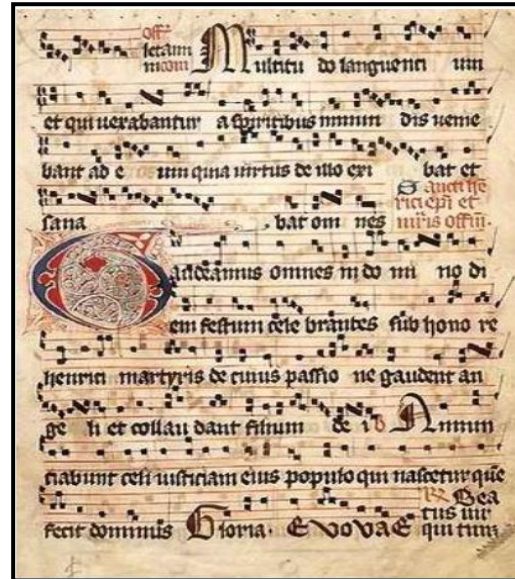 Off
letami
ni com Multitu do languenti um
et qui vexabantur a spiritibus inmun dis venie
bant ad e um quia virtus de illo exi bat et
sana bat om nes
Sancti he
rici epi et
mris offm.
Gaudeamus omnes in do mi no di
em festum cele brantes sub hono re
henrici martyris de cuius passio ne gaudent an
ge li et collau dant filium de i Annun
ciabunt celi iusticiam eius populo qui nascetur que
fecit dominus Gloria. EVOVAE
Bea
tus vir
qui tim